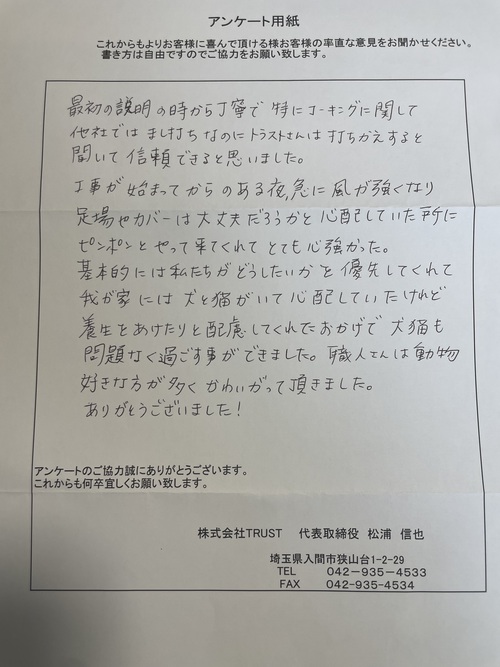 アンケート用紙
これからもよりお客様に喜んで頂ける様お客様の率直な意見をお聞かせください。
書き方は自由ですのでご協力をお願い致します。
最初の説明の時から丁寧で 特にコーキングに関して
他社では まし打ち なのに トラストさんは 打ちかえすると
聞いて 信頼できると思いました。
工事が 始まってからの ある夜、急に 風が強くなり
足場やカバーは大丈夫だろうかと 心配していた所に
ピンポンと やって来てくれて とても心強かった。
基本的には私たちがどうしたいか を 優先してくれて
我が家 には 犬と猫がいて 心配していたけれど
養生をあけたりと配慮してくれたおかげで 犬猫も
問題なく過ごす事ができました。職人さんは動物
好きな方が多く かわいがって頂きました。
ありがとうございました!
アンケートのご協力誠にありがとうございます。
これからも何卒宜しくお願い致します。
株式会社TRUST 代表取締役 松浦 信也
埼玉県入間市狭山台1-2-29
TEL 042-935-4533
FAX 042-935-4534